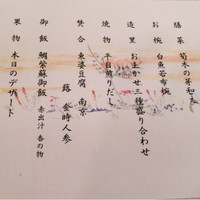 膳菜 筍木の芽和え
お椀 白魚若布椀
造里 おまかせ三種盛り合わせ
焼物 平目
焚合 豆腐 南京
蕗 金時人参
御飯 鯛紫蘇御飯 赤出汁 香の物
果物 本日のデザート